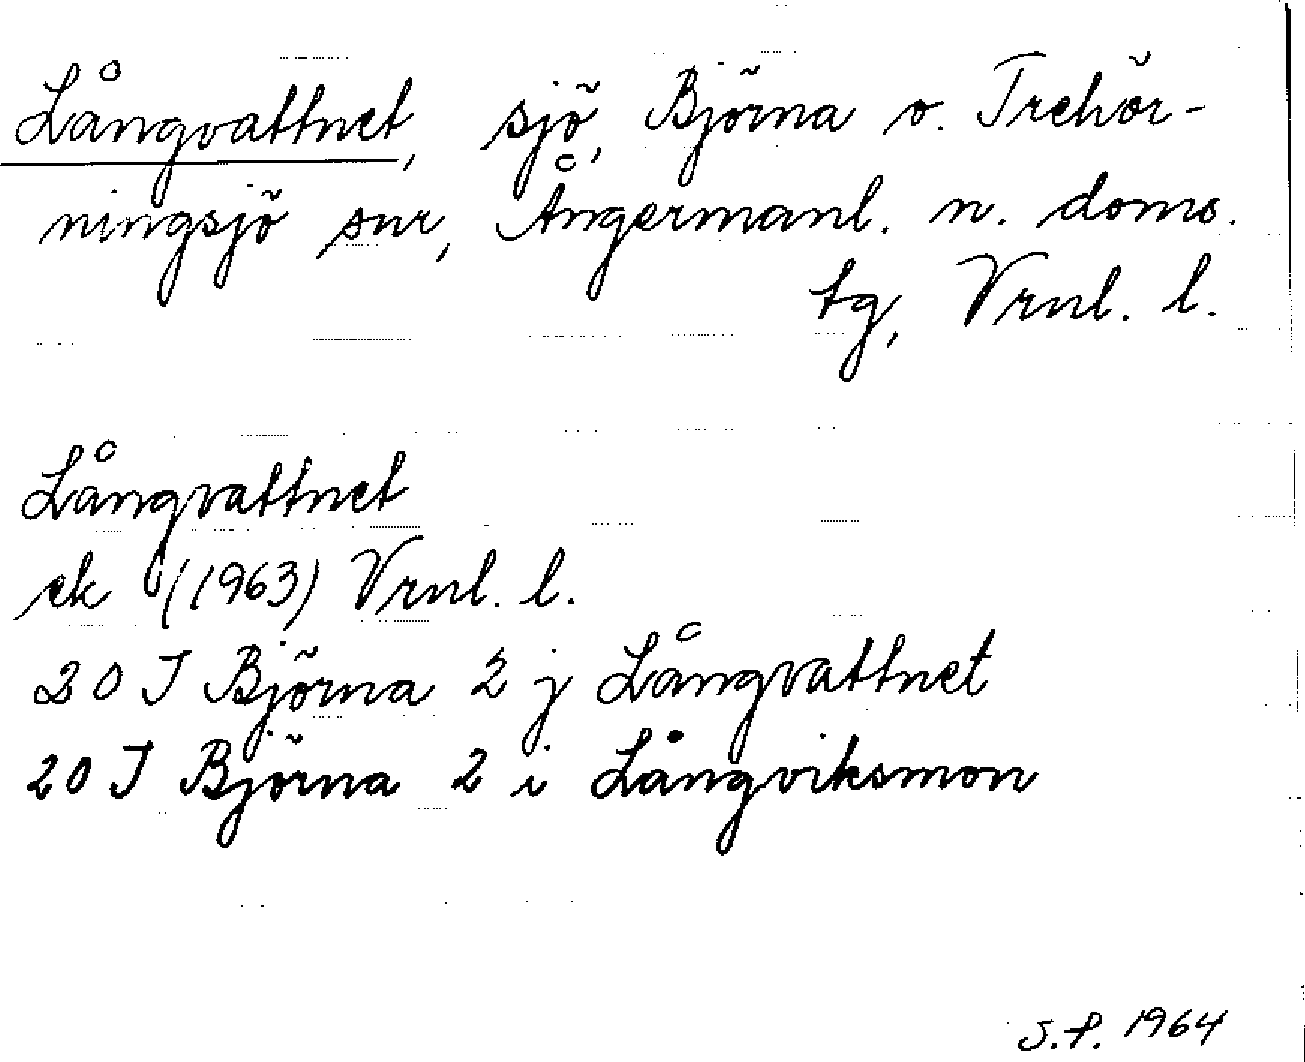 Långvattnet, sjö, Björna o. Trehör-
ningsjö snr, Ångermanl. n. doms.
tg, Vrnl. l.
Långvattnet
ek (1963) Vrnl. l.
20 I Björna 2 j Långvattnet
20 I Björna 2 i Långviksmon
S.P. 1964